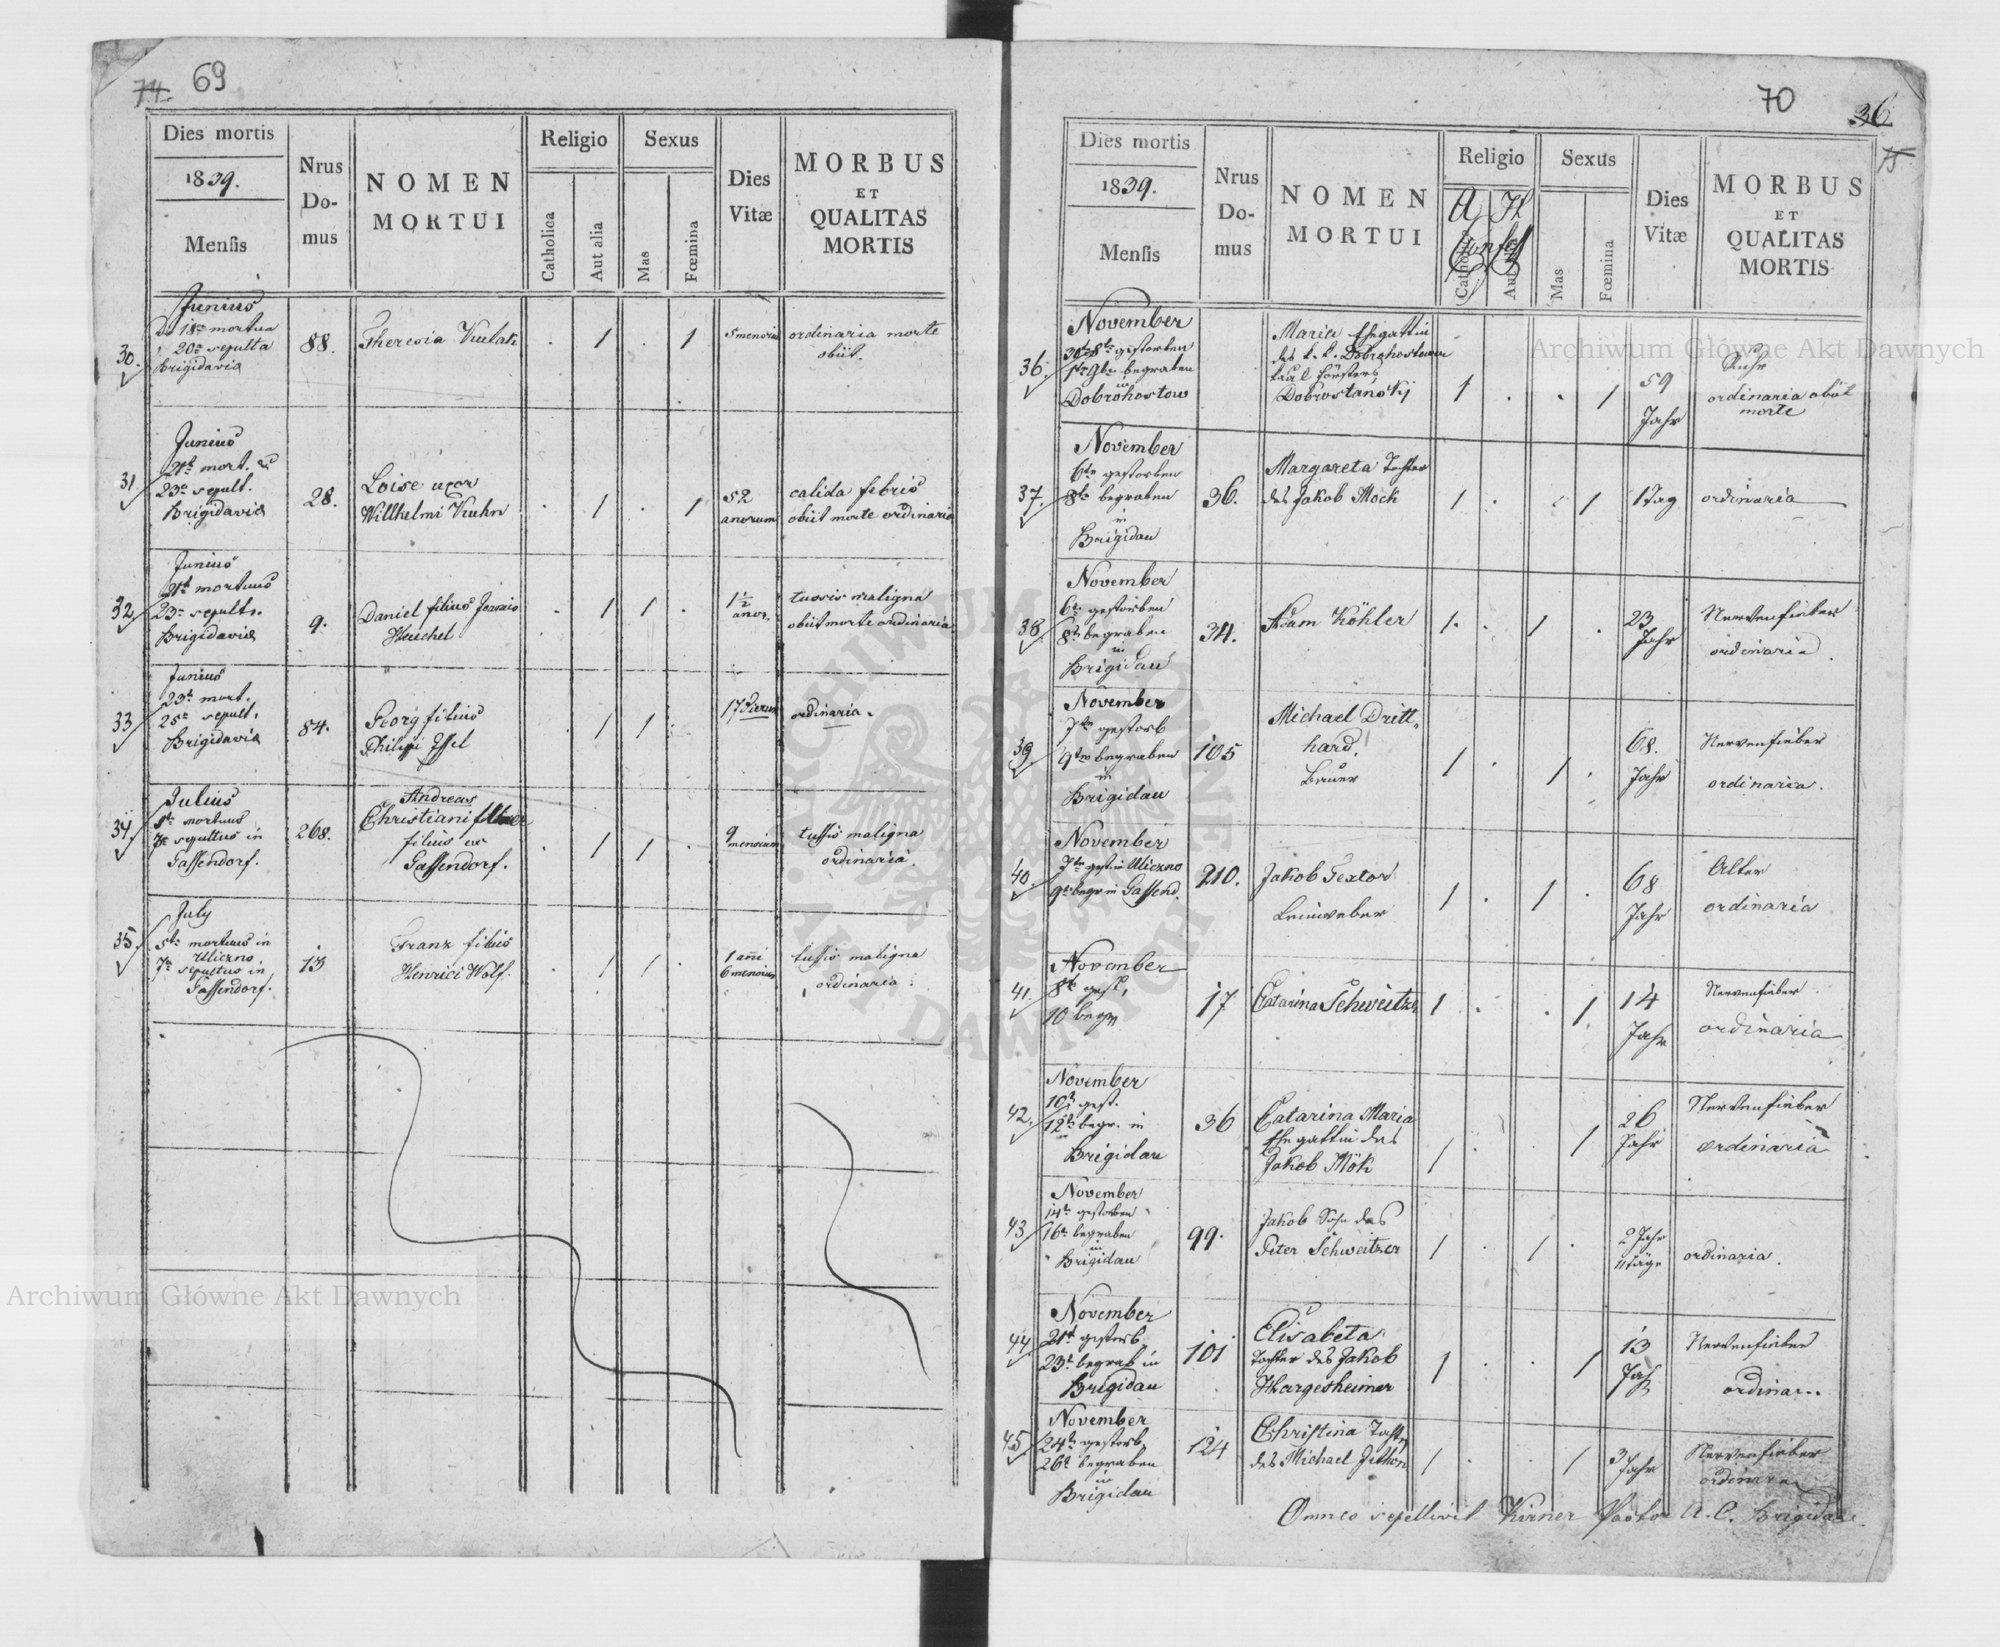 74. 69
Dies mortis
1839.
Mensis
Nrus
Do-
mus
NOMEN
MORTUI
Religio
Catholica
Aut alia
Sexus
Mas
Fœmina
Dies
Vitæ
MORBUS
ET
QUALITAS
MORTIS
30.
Junius
18a mortua
20a sepulta
Brigidavia
88.
Theresia
. 1 . 1
5 mensium
ordinaria morte
obiit.
31
Junius
21a mort. &
23a sepult.
Brigidavia
28.
Loise uxor
Willhelmi Kuhn
. 1 . 1
52
anorum
calida febris
obiit morte ordinaria
32.
Junius
21a mortuus
23a sepult.
Brigidavia
9.
Daniel filius Joannis
Heichel
. 1 1 .
1 1/2
anor.
tussis maligna
obiit morte ordinaria
33
Junius
23a mort.
25a sepult.
Brigidavia
84.
Georg filius
Philippi Issel
. 1 1 .
17 Dierum
ordinaria.
34.
Julius
5a mortuus
7a sepultus in
Gassendorf.
268.
Andreas
Christiani
filius ex
Gassendorf.
. 1 1 .
9
mensium
tussis maligna
ordinaria.
35.
July
5ta mortuus in
Uliczno.
7a sepultus in
Gassendorf.
13
Franz filius
Henrici Wolf.
. 1 1 .
1 ani
6 mensium
tussis maligna
ordinaria.
70 36
75
Dies mortis
1839.
Mensis
Nrus
Do-
mus
NOMEN
MORTUI
Religio
A H
Confess
Catholica
Aut alia
Sexus
Mas
Fœmina
Dies
Vitæ
MORBUS
ET
QUALITAS
MORTIS
36.
November
gestorben
begraben
in
Dobrohostow
Maria Ehegattin
des k. k. Dobrohostower
Försters
Dobrostanskÿ
1 . . 1
59
Jahr
Ruhr
ordinaria obiit
morte
37.
November
6ten gestorben
8ten begraben
in
Brigidau
36.
Margareta Tochter
des Jakob Mock
1 . . 1
1 Tag
ordinaria
38.
November
6ten gestorben
8ten begraben
in
Brigidau
34.
Adam Köhler
1 . 1 .
23
Jahr
Nervenfieber
ordinaria.
39.
November
7ten gestorb
9ten begraben
in
Brigidau
105
Michael Dritt-
hard.
Bauer
1 . 1 .
68.
Jahr
Nervenfieber
ordinaria.
40.
November
7ten gest in Uliczno
9ten begr in Gassend.
210.
Jakob Textor
Leinweber
1 . 1 .
68
Jahr
Alter
ordinaria
41.
November
8ten gest.
10 begr
17
Catarina Schweitzer
1 . . 1
14
Jahr
Nervenfieber
ordinaria
42.
November
10t gest.
12t begr. in
Brigidau
36
Catarina Maria
Ehegattin des
Jakob Mök
1 . . 1
26
Jahr
Nervenfieber
ordinaria
43
November
14t gestorben
16t begraben
in
Brigidau
99.
Jakob Sohn des
Peter Schweitzer
1 . 1 .
2 Jahr
11 Täge
ordinaria.
44
November
21t gestorb.
23t begrab in
Brigidau
101
Elisabeta
Tochter des Jakob
Hargesheimer
1 . . 1
13
Jahr
Nervenfieber
ordinar..
45
November
24t gestorb.
26t begraben
in
Brigidau
124
Christina Tocht
des Michael
1 . . 1
3
Jahr
Nervenfieber
ordinaria
Omnes sepellivit Kirner Pastor A. C. Brigidau.
Archiwum Główne Akt Dawnych
Archiwum Główne Akt Dawnych
ARCHIWUM GŁÓWNE AKT DAWNYCH